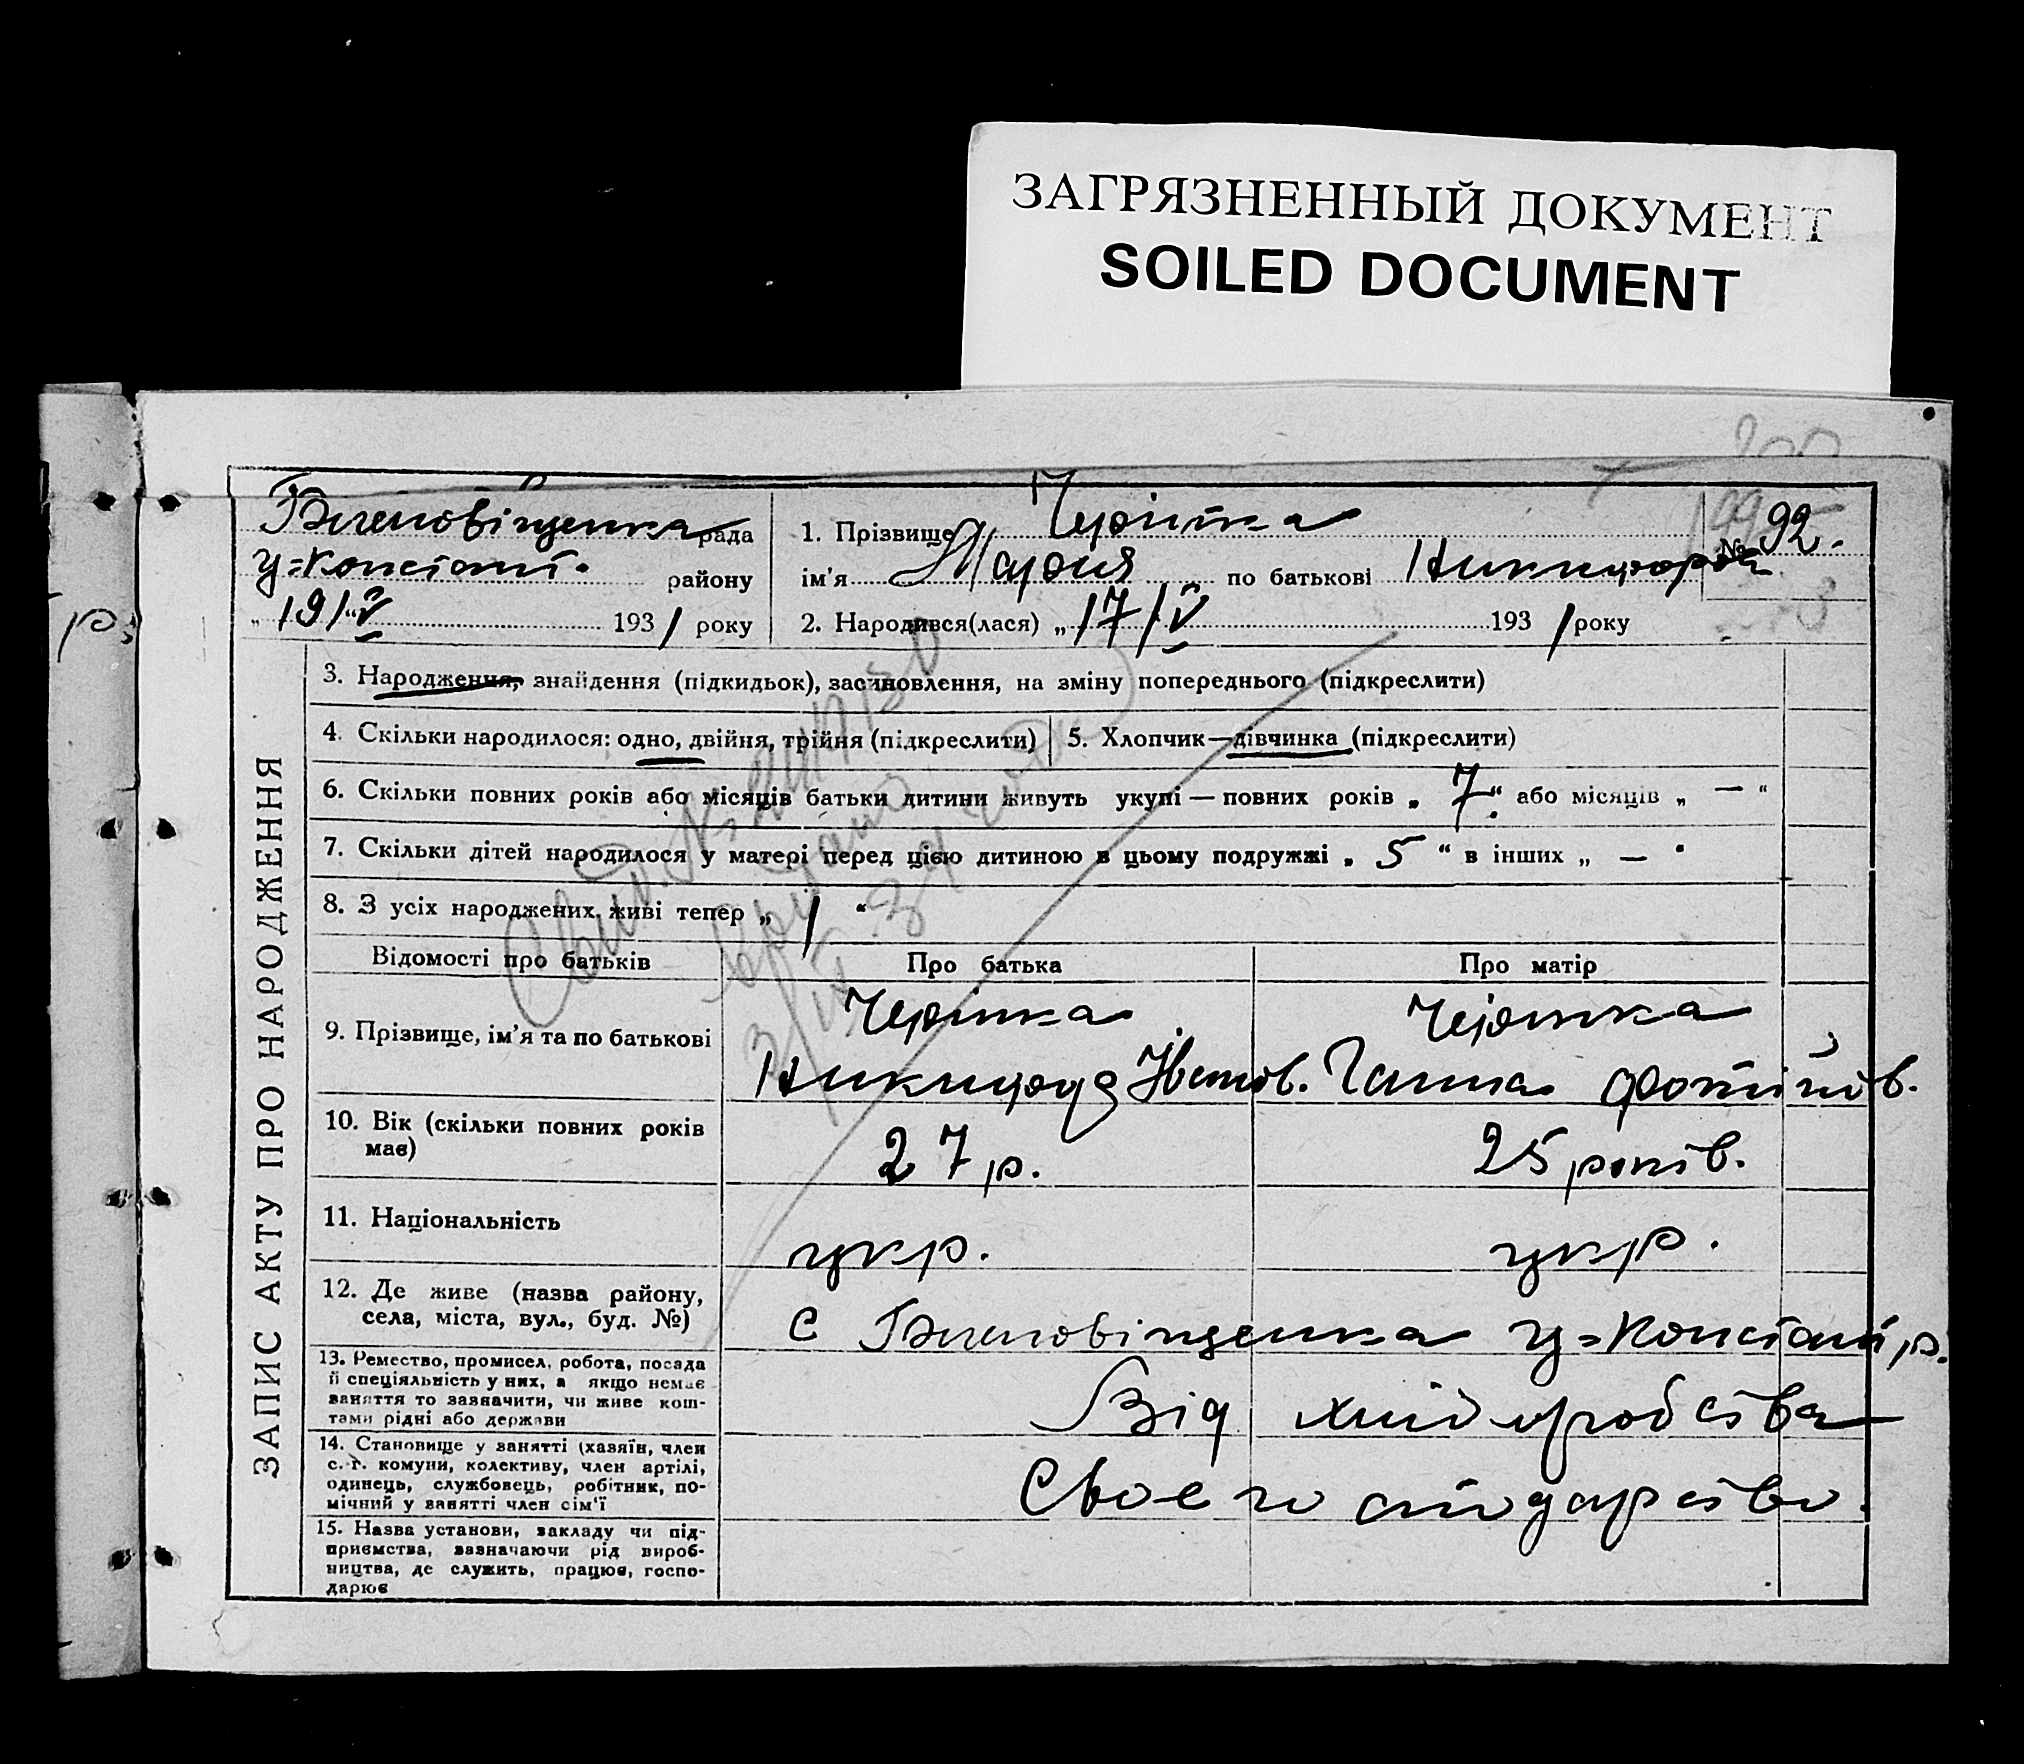 ЗАГРЯЗНЕННЫЙ ДОКУМЕНТ
SOILED DOCUMENT
рада
у=Констант.
району
„19/V 1931 року
1. Прізвище
№ 92.
ім'я Мария по батькові
2. Народився(лася) „17/V 1931 року
ЗАПИС АКТУ ПРО НАРОДЖЕННЯ
3. Народження, знайдення (підкидьок), засиновлення, на зміну попереднього (підкреслити)
4. Скільки народилося: одно, двійня, трійня (підкреслити)
5. Хлопчик—дівчинка (підкреслити)
6. Скільки повних років або місяців батьки дитини живуть укупі — повних років „ 7 “ або місяців „ — “
7. Скільки дітей народилося у матері перед цією дитиною в цьому подружжі „ 5 “ в інших „ — “
8. З усіх народжених живі тепер „ 1 “
Відомості про батьків
Про батька
Про матір
9. Прізвище, ім'я та по батькові
Ганна Фотіїов.
10. Вік (скільки повних років має)
27 р.
25 років.
11. Національність
укр.
укр.
12. Де живе (назва району,
села, міста, вул., буд. №)
с у=Констант р.
13. Ремество, промисел, робота, посада
й спеціяльність у них, а якщо немає
заняття то зазначити, чи живе кош-
тами рідні або держави
Від хліборобства
14. Становище у занятті (хазяїн, член
с.-г. комуни, колективу, член артілі,
одинець, службовець, робітник, по-
мічний у занятті член сім'ї
Своє
15. Назва установи, закладу чи під-
приємства, зазначаючи рід вироб-
ництва, де служить, працює, госпо-
дарює